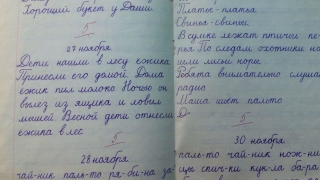 Хороший букет у Даши.
5
27 ноября
Дети нашли в лесу ёжика
Принесли его домой. Дома
ёжик пил молоко Ночью он
вылез из ящика и ловил
мышей Весной дети отнесли
ёжика в лес
5
28 ноября
чай-ник паль-то ря-би-на за-
Платье-платья.
Свинья-свиньи.
В сумке лежат птичьи
перья По следам охотники на
шли лисьи норы
Ребята внимательно слуша
радио
Маша шьёт пальто
5
30 ноября
паль-то чай-ник нож-ни
спич-ки кук-ла ба-ра